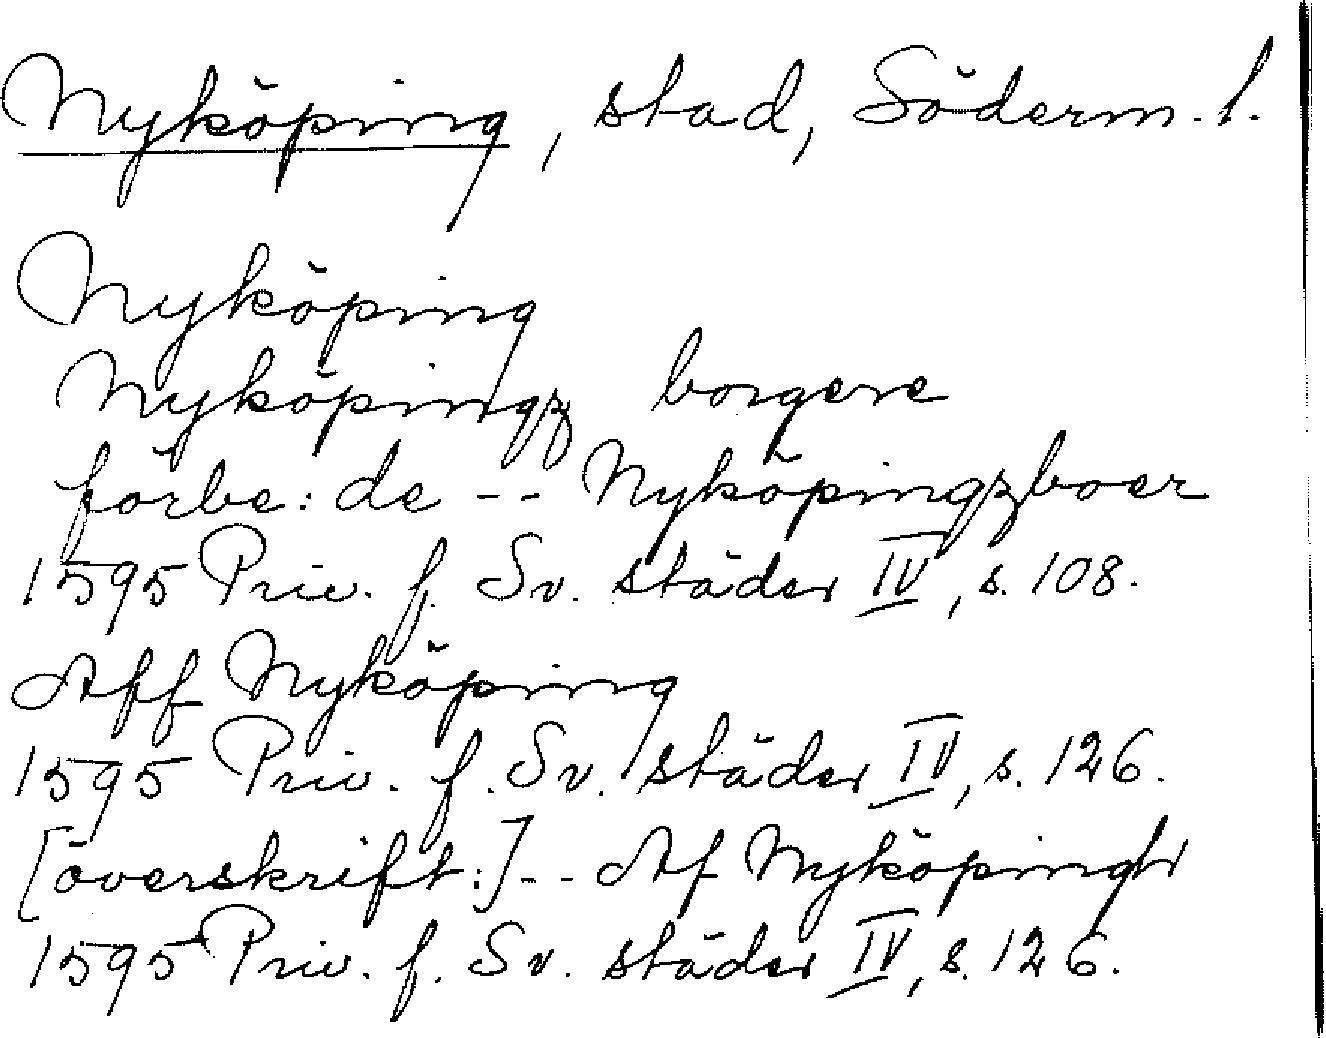 Nyköping, stad, Söderm. l.
Nyköping
Nyköpingz borgere
förbe: de -- Nyköpingzboer
1595 Priv. f. Sv. städer IV, s. 108.
Aff Nyköping
1595 Priv. f. Sv. städer IV, s. 126.
[överskrift:] -- Af Nyköpingh
1595 Priv. f. Sv. städer IV, s. 126.